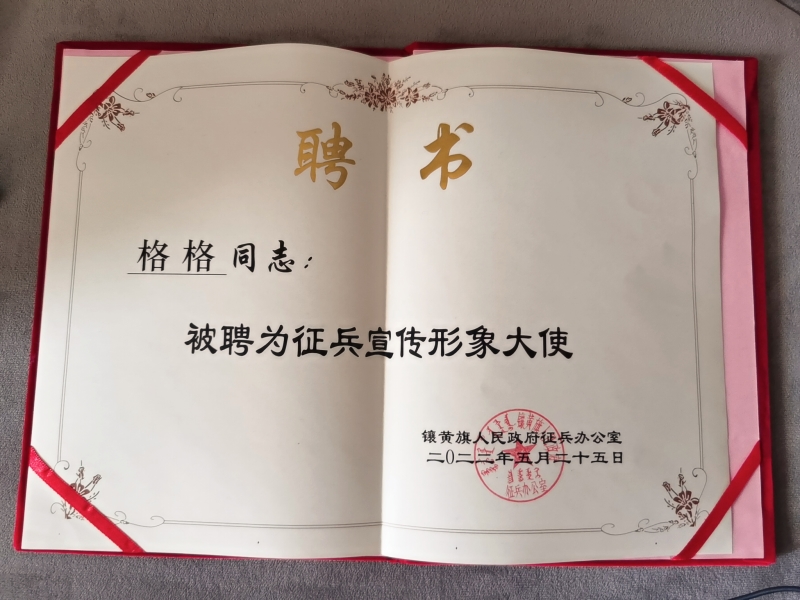 聘书
格格同志：
被聘为征兵宣传形象大使
镶黄旗人民政府征兵办公室
二〇二三年五月二十五日
征兵办公室